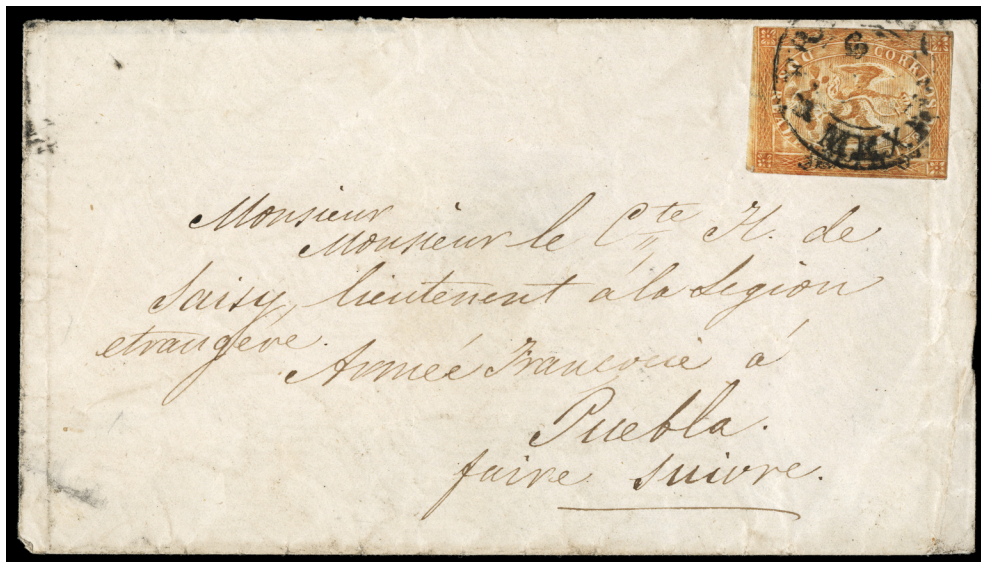 CORREOS
Monsieur
Monsieur le Cte H. de
Saisy, lieutenent á la Legion
etrangére.
Armée Francaise á
Puebla.
faire suivre.